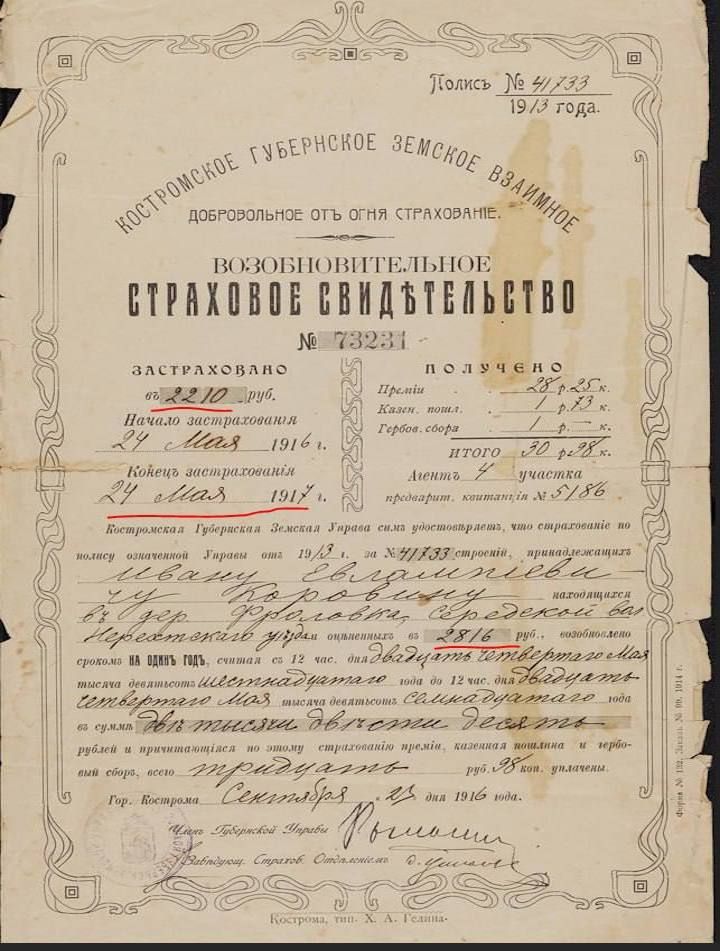 Полисъ № 41733
1913 года.
КОСТРОМСКОЕ ГУБЕРНСКОЕ ЗЕМСКОЕ ВЗАИМНОЕ
ДОБРОВОЛЬНОЕ ОТЪ ОГНЯ СТРАХОВАНІЕ.
ВОЗОБНОВИТЕЛЬНОЕ
СТРАХОВОЕ СВИДѢТЕЛЬСТВО
№ 73231
ЗАСТРАХОВАНО
въ 2210 руб.
Начало застрахованія
24 Мая 1916 г.
Конецъ застрахованія
24 Мая 1917 г.
ПОЛУЧЕНО
Преміи . . 28 р. 25 к.
Казен. пошл. . 1 р. 73 к.
Гербов. сбора . 1 р. — к.
ИТОГО 30 р. 98 к.
Агентъ 4 участка
предварит. квитанція № 5186
Костромская Губернская Земская Управа симъ удостовѣряетъ, что страхованіе по
полису означенной Управы отъ 1913 г. за № 41733 строеній, принадлежащихъ
Ивану Евлампіеви
чу Коровину находящихся
въ дер. Фроловка, Середской вол
Нерехтскаго уѣзда и оцѣненныхъ въ 2816 руб., возобновлено
срокомъ НА ОДИН ГОДЪ, считая съ 12 час. дня двадцать четвертаго Мая
тысяча девятьсотъ шестнадцатаго года до 12 час. дня двадцать
четвертаго Мая тысяча девятьсотъ семнадцатаго года
въ суммѣ двѣ тысячи двѣсти десять
рублей и причитающіяся по этому страхованію преміи, казенная пошлина и гербо-
вый сборъ, всего тридцать руб. 98 коп. уплачены.
Гор. Кострома Сентября 27 дня 1916 года.
Членъ Губернской Управы
Завѣдующ. Страхов. Отдѣленіемъ
Кострома, тип. Х. А. Гелина.
Форма № 132. Заказъ № 99. 1914 г.